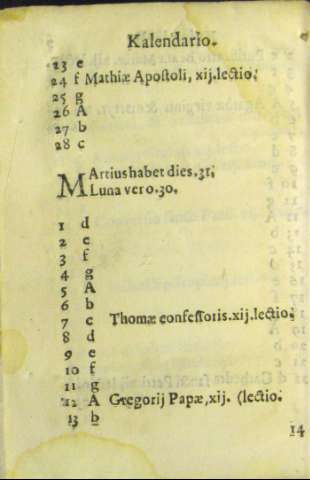 Kalendario.
23 e
24 f Mathiæ Apostoli, xij.lectio.
25 g
26 A
27 b
28 c
MArtius habet dies.31.
Luna vero.30.
1 d
2 e
3 f
4 g
5 A
6 b
7 c Thomæ confessoris.xij.lectio.
8 d
9 e
10 f
11 g
12 A Gregorij Papæ, xij. (lectio.
13 b
14